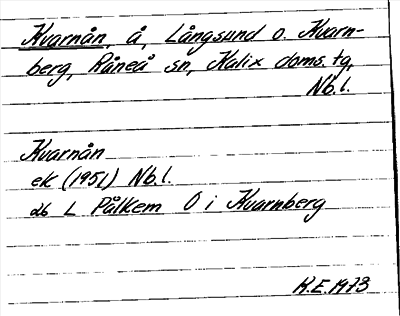 Kvarnån, å, Långsund o. Kvarn-
berg, Råneå sn, Kalix doms. tg,
Nb. l.
Kvarnån
ek (1951) Nb. l.
db L Pålkem O i Kvarnberg
K.E. 1973